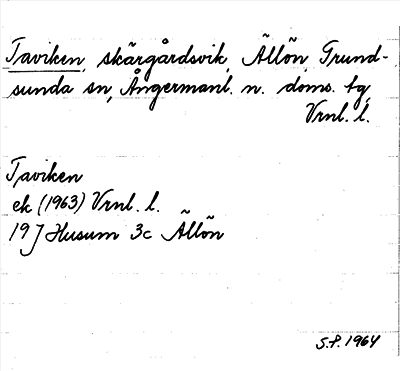 Taviken, skärgårdsvik, Ällön Grund-
sunda sn, Ångermanl. n. doms. tg,
Vrnl. l.
Taviken
ek (1963) Vrnl. l.
19J Husum 3c Ällön
S.P. 1964